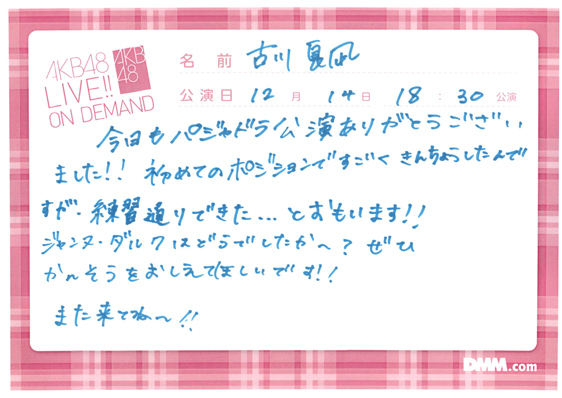 AKB48
LIVE!!
ON DEMAND
AKB
48
名前 古川夏凪
公演日 12月14日 18:30公演
今日もパジャドラ公演ありがとうござい
ました!! 初めてのポジションですごくきんちょうしたんで
すが、練習通りできた...とおもいます!!
ジャンヌ・ダルクはどうでしたかへ? ぜひ
かんそうをおしえてほしいです!!
また来てね〜!!
DMM.com